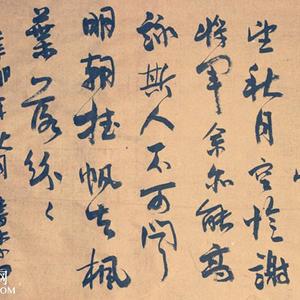 望秋月空憶謝
將軍余亦能高
詠斯人不可聞
明朝挂帆去楓
葉落紛々
网
COM